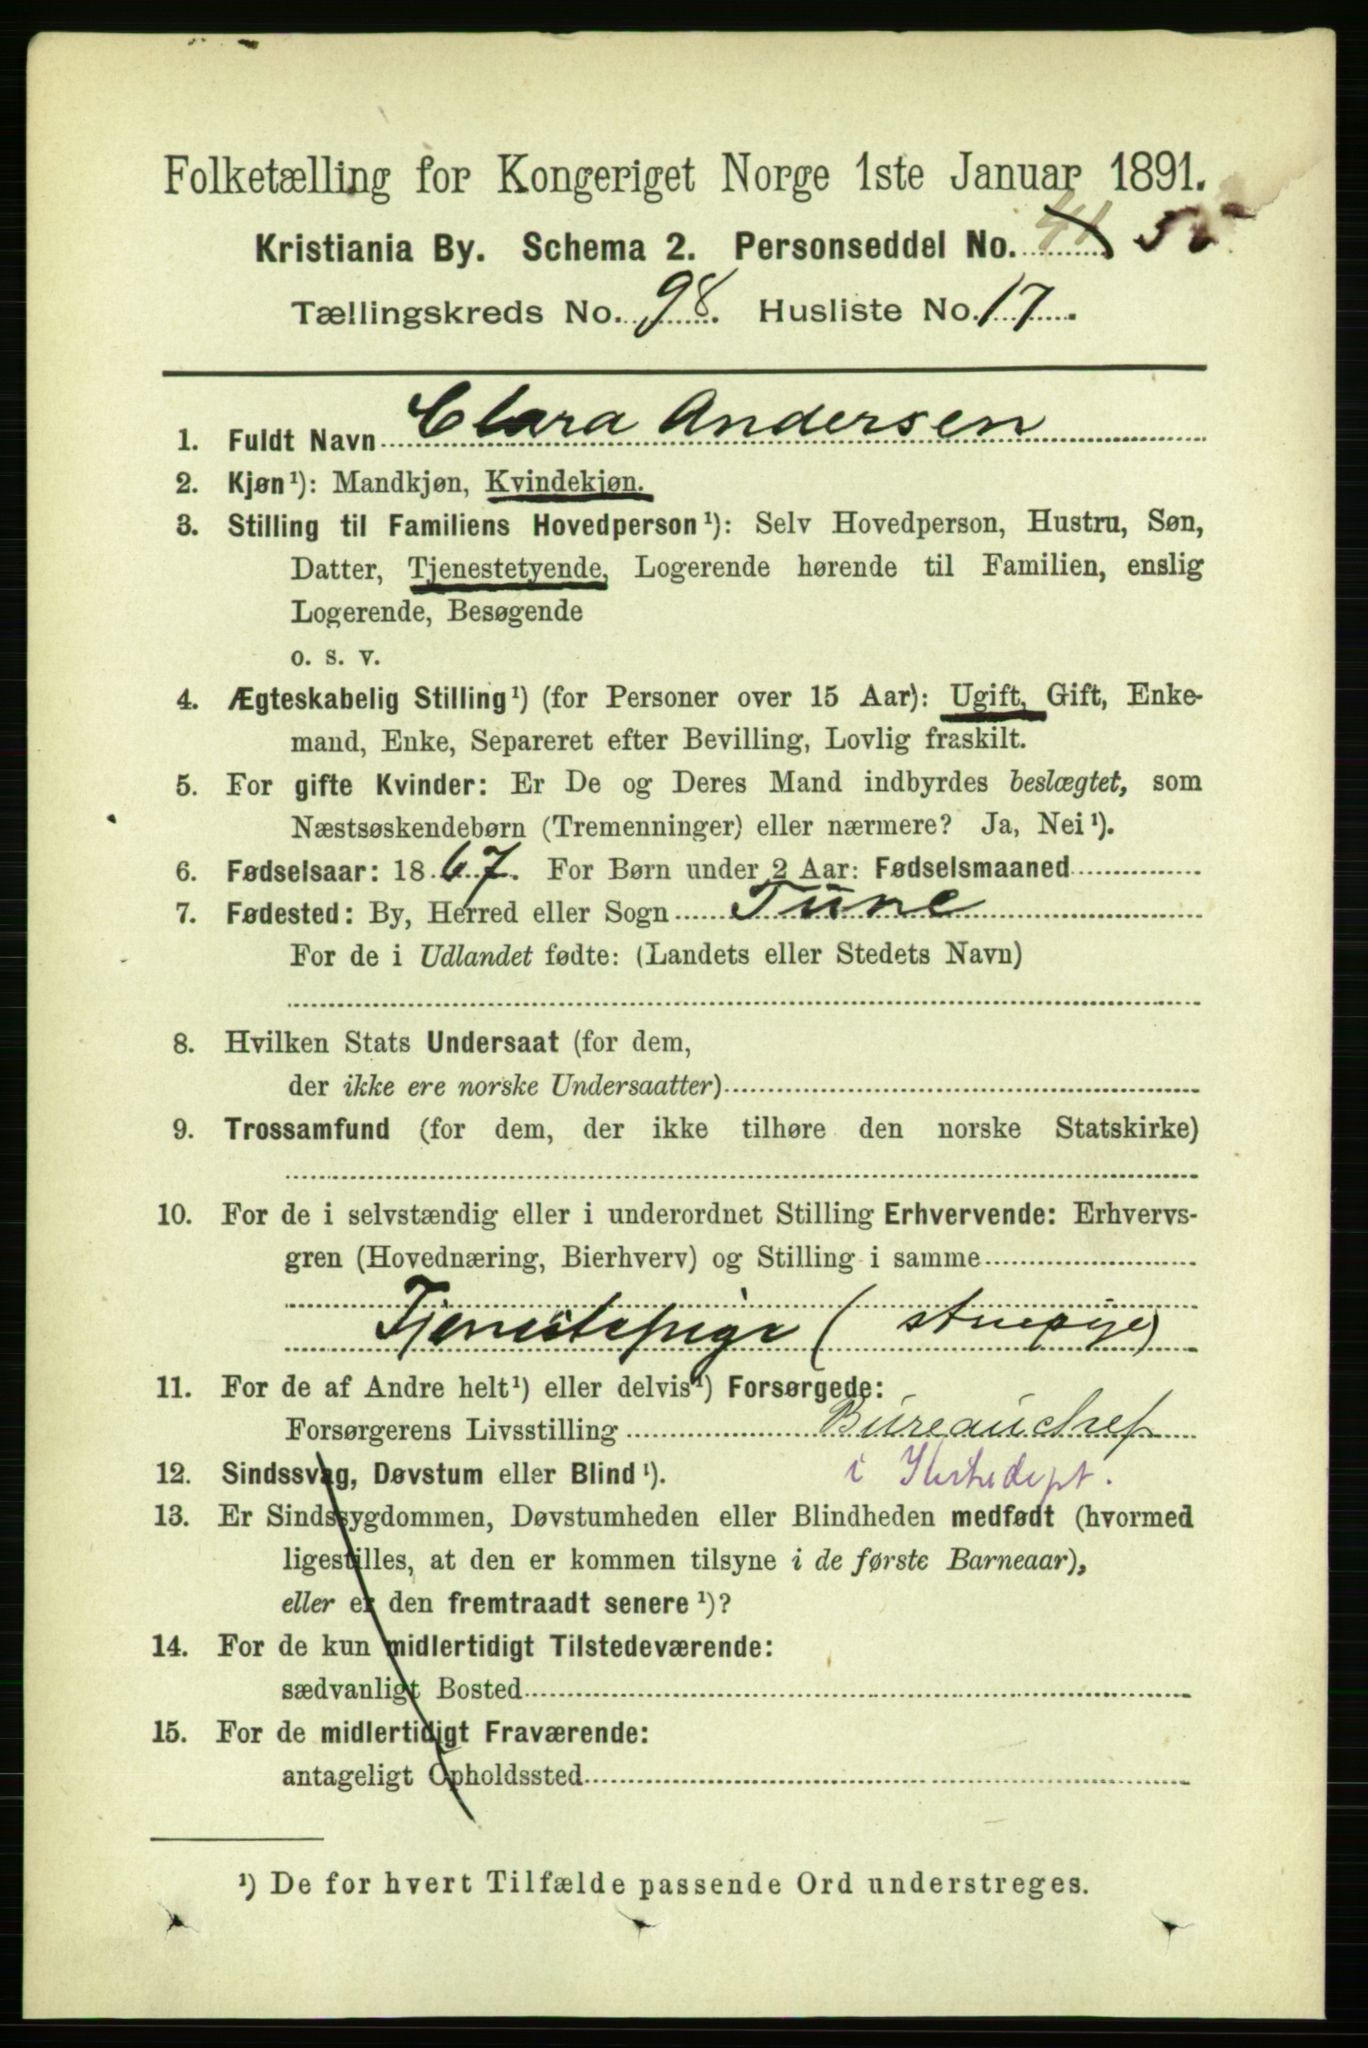 Folketælling for Kongeriget Norge 1ste Januar 1891.
Kristiania By. Schema 2. Personseddel No. 41
Tællingskreds No. 98. Husliste No. 17.
1. Fuldt Navn Clara Andersen
2. Kjøn¹): Mandkjøn, Kvindekjøn.
3. Stilling til Familiens Hovedperson¹): Selv Hovedperson, Hustru, Søn,
Datter, Tjenestetyende, Logerende hørende til Familien, enslig
Logerende, Besøgende
o. s. v.
4. Ægteskabelig Stilling¹) (for Personer over 15 Aar): Ugift, Gift, Enke-
mand, Enke, Separeret efter Bevilling, Lovlig fraskilt.
5. For gifte Kvinder: Er De og Deres Mand indbyrdes beslægtet, som
Næstsøskendebørn (Tremenninger) eller nærmere? Ja, Nei¹).
6. Fødselsaar: 1867. For Børn under 2 Aar: Fødselsmaaned
7. Fødested: By, Herred eller Sogn Tune
For de i Udlandet fødte: (Landets eller Stedets Navn)
8. Hvilken Stats Undersaat (for dem,
der ikke ere norske Undersaatter)
9. Trossamfund (for dem, der ikke tilhøre den norske Statskirke)
10. For de i selvstændig eller i underordnet Stilling Erhvervende: Erhvervs-
gren (Hovednæring, Bierhverv) og Stilling i samme
Tjenestepige (stuepige)
11. For de af Andre helt¹) eller delvis¹) Forsørgede:
Forsørgerens Livsstilling Bureauchef
12. Sindssvag, Døvstum eller Blind¹). i
13. Er Sindssygdommen, Døvstumheden eller Blindheden medfødt (hvormed
ligestilles, at den er kommen tilsyne i de første Barneaar),
eller er den fremtraadt senere¹)?
14. For de kun midlertidigt Tilstedeværende:
sædvanligt Bosted
15. For de midlertidigt Fraværende:
antageligt Opholdssted
¹) De for hvert Tilfælde passende Ord understreges.